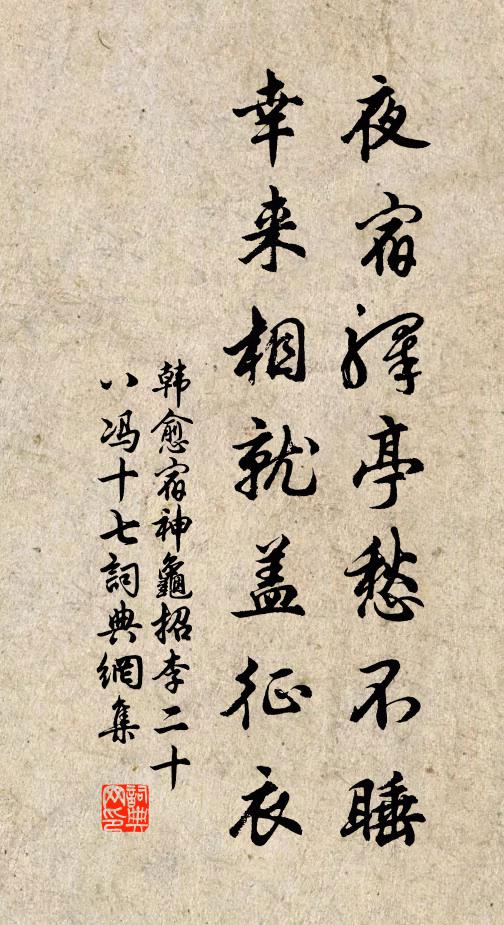 夜宿驛亭愁不睡
幸来相就盖征衣
韩愈宿神龜招李二十
八冯十七詞典網集
詞典
网印